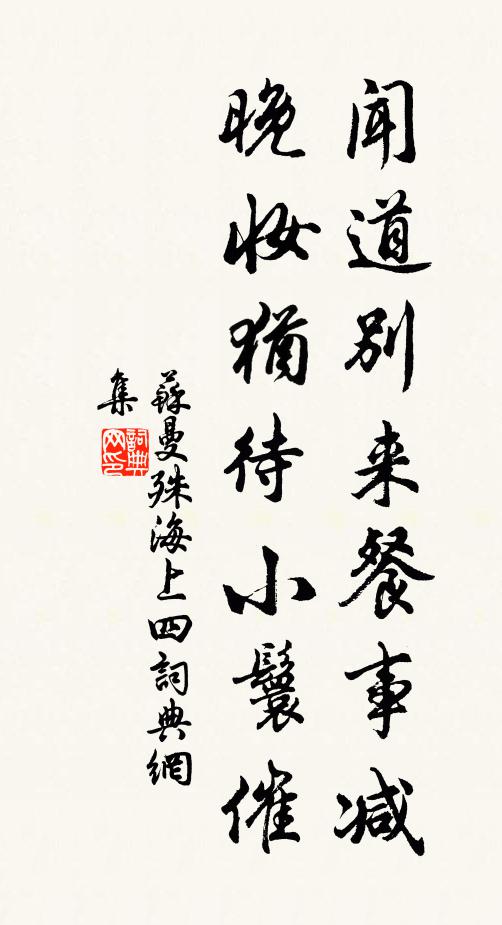 闻道别来餐事减
晚妆犹待小鬟催
蘇曼殊海上四詞典網
集
詞典网印